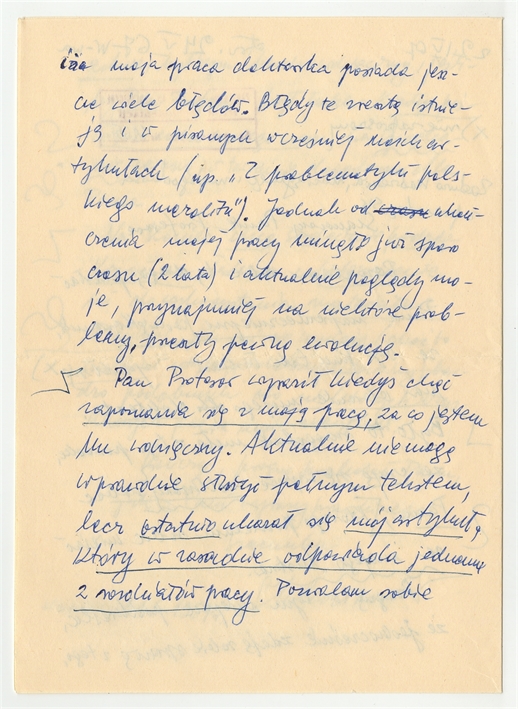 iż moja praca doktorska posiada jesz-
cze wiele błędów. Błędy te zresztą istnie-
ją i w pisanych wcześniej moich ar-
tykułach (np. „Z problematyki pols-
kiego mezolitu"). Jednak od czasu ukoń-
czenia mojej pracy minęło już sporo
czasu (2 lata) i aktualnie poglądy mo-
je, przynajmniej na niektóre prob-
lemy, przeszły pewną ewolucję.
Pan Profesor wyraził kiedyś chęć
zapoznania się z moją pracą, za co jestem
Mu wdzięczny. Aktualnie nie mogę
wprawdzie służyć pełnym tekstem,
lecz ostatnio ukazał się mój artykuł,
który w zasadzie odpowiada jednemu
z rozdziałów pracy. Pozwalam sobie